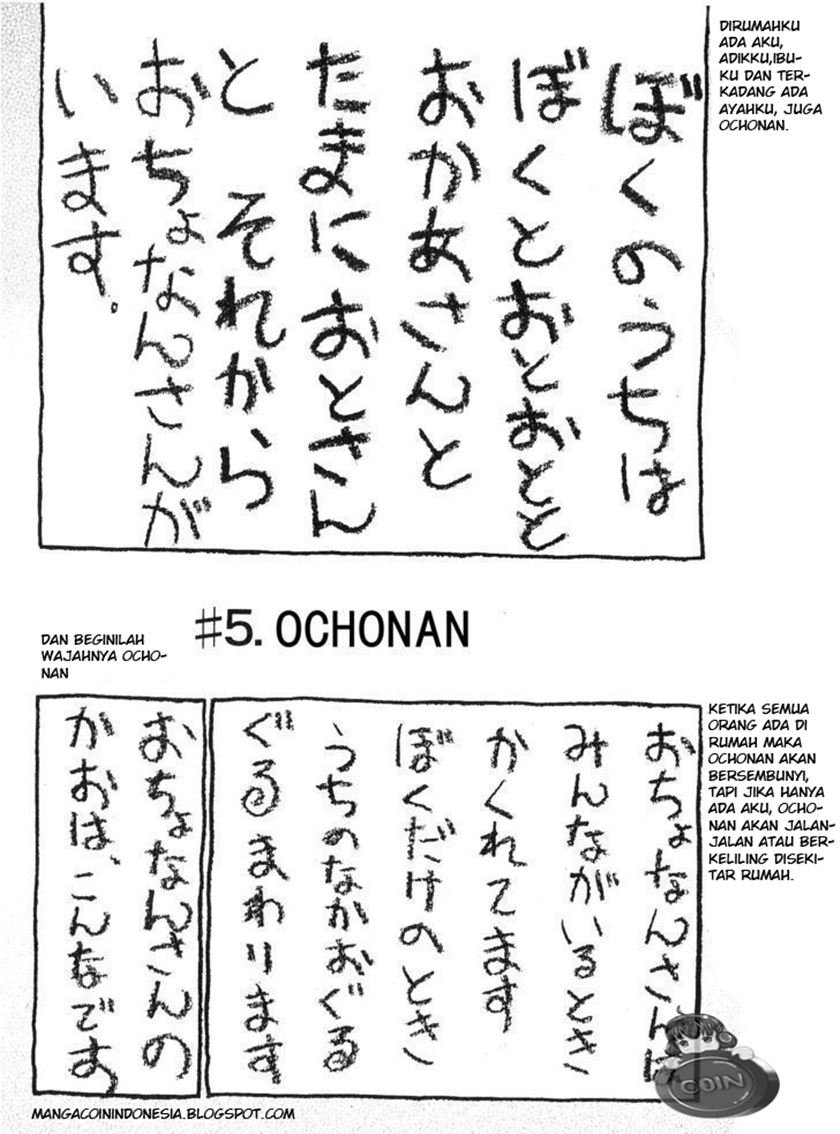 ぼくのうちは
ぼくとおとおとと
おかあさんと
たまにおとさん
と それから
おちょなんさんが
います。
DIRUMAHKU
ADA AKU,
ADIKKU,IBU-
KU DAN TER-
KADANG ADA
AYAHKU, JUGA
OCHONAN.
#5. OCHONAN
おちょなんさんは
みんながいるとき
かくれてます
ぼくだけのとき
うちのなかおぐる
ぐるまわります
KETIKA SEMUA
ORANG ADA DI
RUMAH MAKA
OCHONAN AKAN
BERSEMBUNYI,
TAPI JIKA HANYA
ADA AKU, OCHO-
NAN AKAN JALAN-
JALAN ATAU BER-
KELILING DISEKI-
TAR RUMAH.
DAN BEGINILAH
WAJAHNYA OCHO-
NAN
おちょなんさんの
かおは、こんなです
COIN
MANGACOININDONESIA.BLOGSPOT.COM